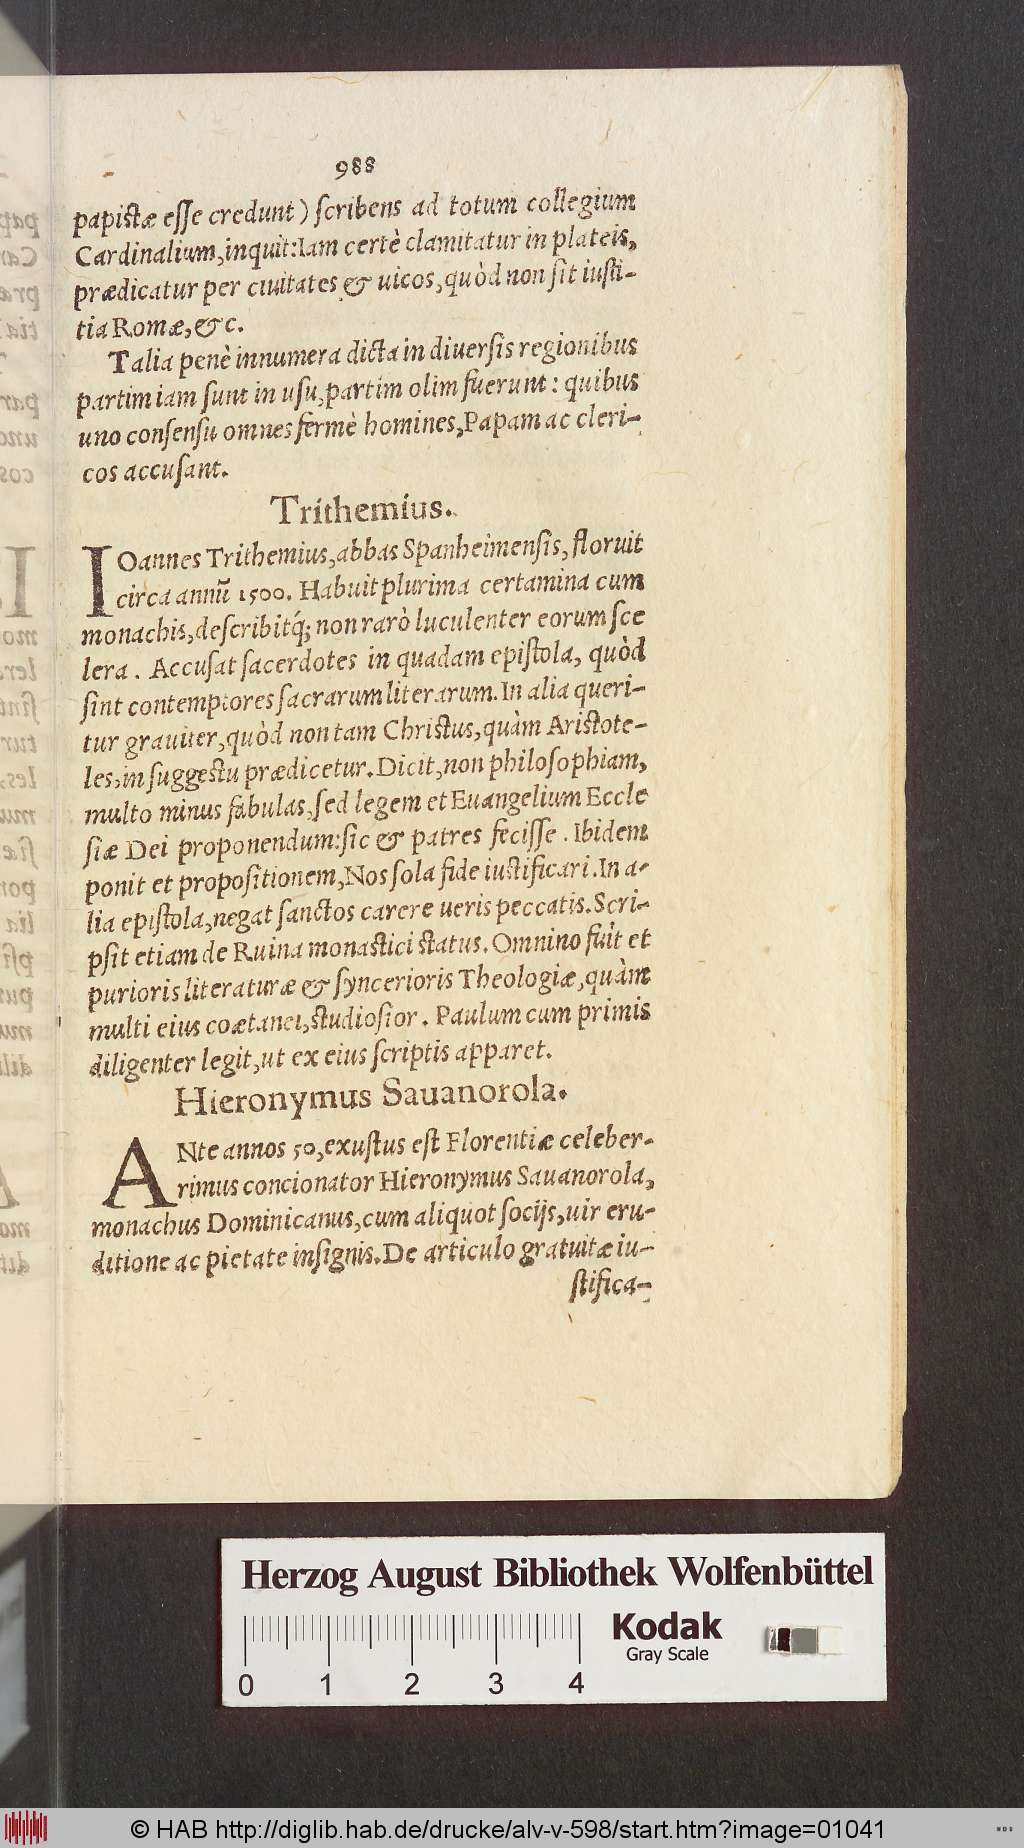 988
papistæ esse credunt) scribens ad totum collegium
Cardinalium, inquit: Iam certè clamitatur in plateis,
prædicatur per ciuitates & uicos, quòd non sit iusti-
tia Romæ, &c.
Talia penè innumera dicta in diuersis regionibus
partim iam sunt in usu, partim olim fuerunt: quibus
uno consensu omnes fermè homines, Papam ac cleri-
cos accusant.
Trithemius.
IOannes Trithemius, abbas Spanheimensis, floruit
circa annũ 1500. Habuit plurima certamina cum
monachis, describitq́; non rarò luculenter eorum sce
lera. Accusat sacerdotes in quadam epistola, quòd
sint contemptores sacrarum literarum. In alia queri-
tur grauiter, quòd non tam Christus, quàm Aristote-
les, in suggestu prædicetur. Dicit, non philosophiam,
multo minus fabulas, sed legem et Euangelium Eccle
siæ Dei proponendum: sic & patres fecisse. Ibidem
ponit et propositionem, Nos sola fide iustificari. In a-
lia epistola, negat sanctos carere ueris peccatis. Scri-
psit etiam de Ruina monastici status. Omnino fuit et
purioris literaturæ & syncerioris Theologiæ, quàm
multi eius coætanei, studiosior. Paulum cum primis
diligenter legit, ut ex eius scriptis apparet.
Hieronymus Sauanorola.
ANte annos 50, exustus est Florentiæ celeber-
rimus concionator Hieronymus Sauanorola,
monachus Dominicanus, cum aliquot socijs, uir eru-
ditione ac pietate insignis. De articulo gratuitæ iu-
stifica-
Herzog August Bibliothek Wolfenbüttel
0 1 2 3 4
Kodak
Gray Scale
© HAB http://diglib.hab.de/drucke/alv-v-598/start.htm?image=01041